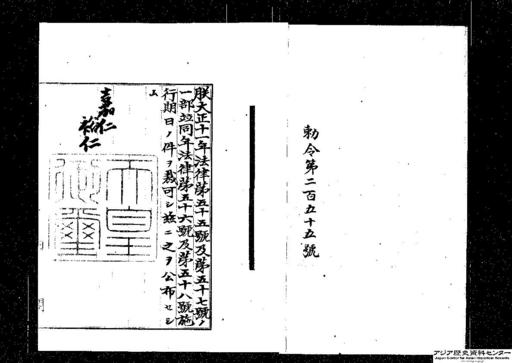 勅令第二百五十五號
朕大正十一年法律第五十五號及第五十七號ノ
一部竝同年法律第五十六號及第五十八號施
行期日ノ件ヲ裁可シ茲ニ之ヲ公布セシ
ム
嘉仁
裕仁
天皇
御璽
アジア歴史資料センター
Japan Center for Asian Historical Records